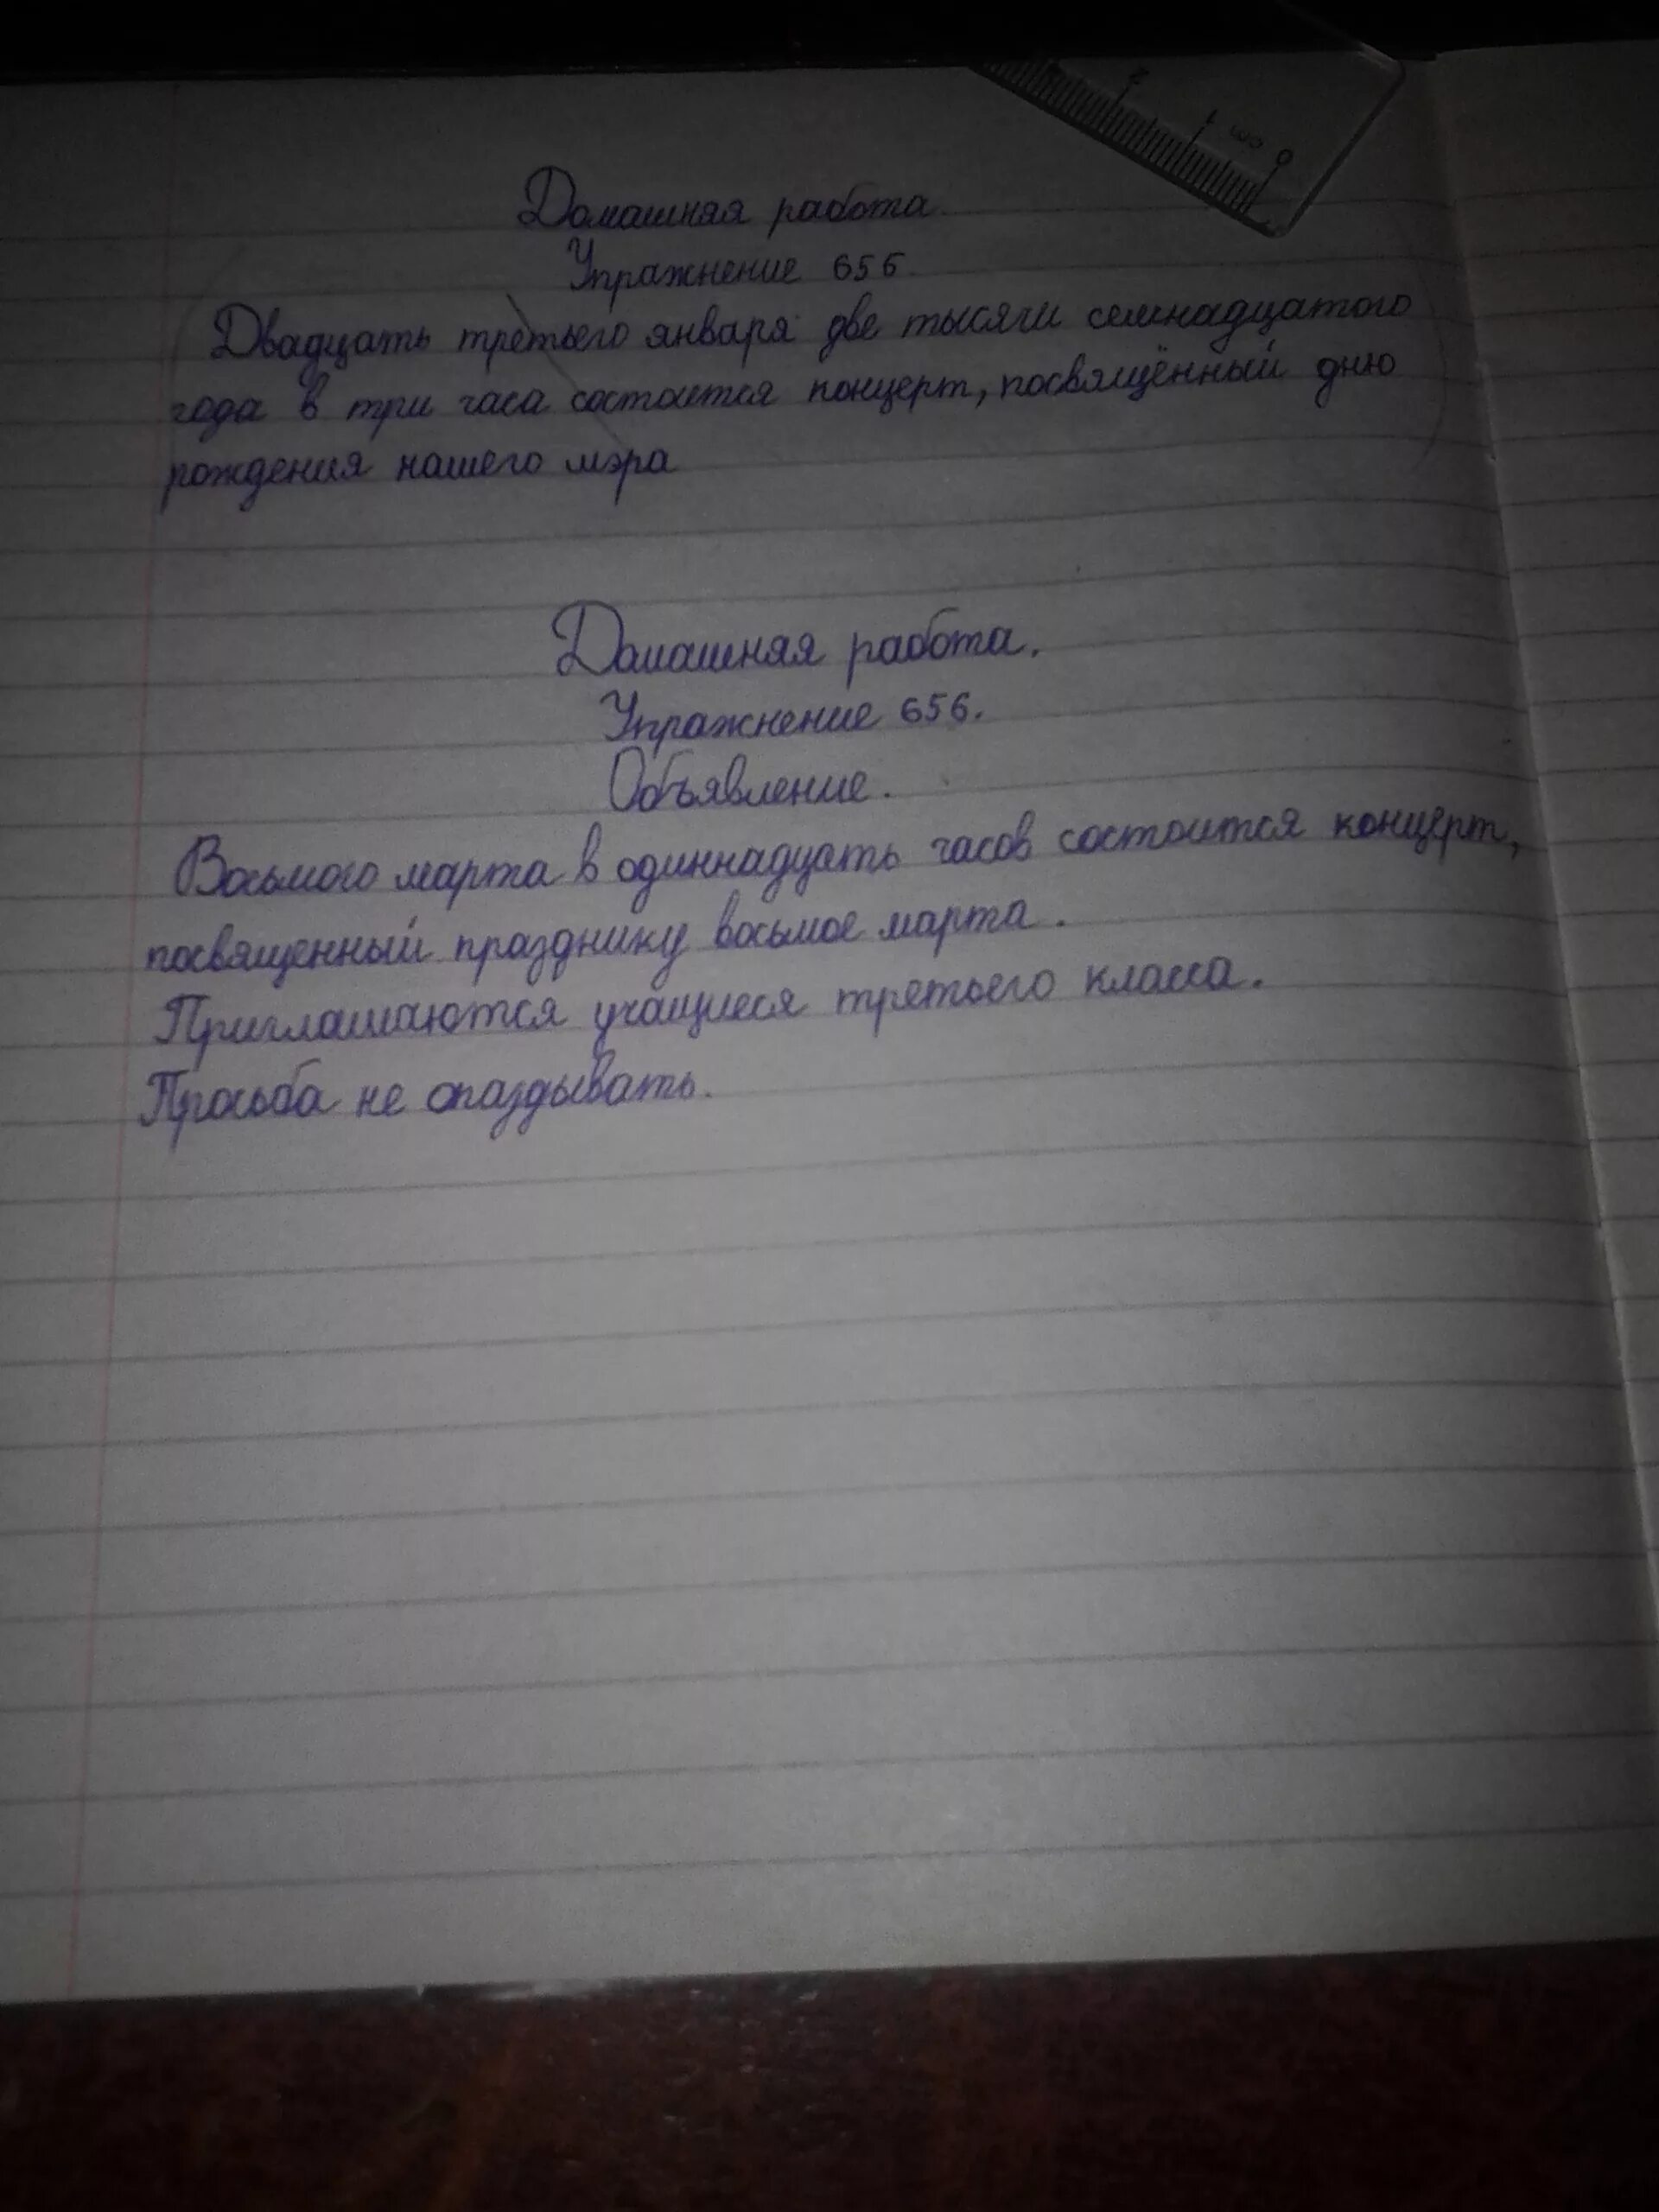 2
1
cm
0
Домашняя работа
Упражнение 656.
Двадцать третьего января две тысячи семнадцатого
года в три часа состоится концерт, посвящённый дню
рождения нашего мэра
Домашняя работа.
Упражнение 656.
Объявление.
Восьмого марта в одиннадцать часов состоится концерт,
посвященный празднику восьмое марта.
Приглашаются учащиеся третьего класса.
Просьба не опаздывать.